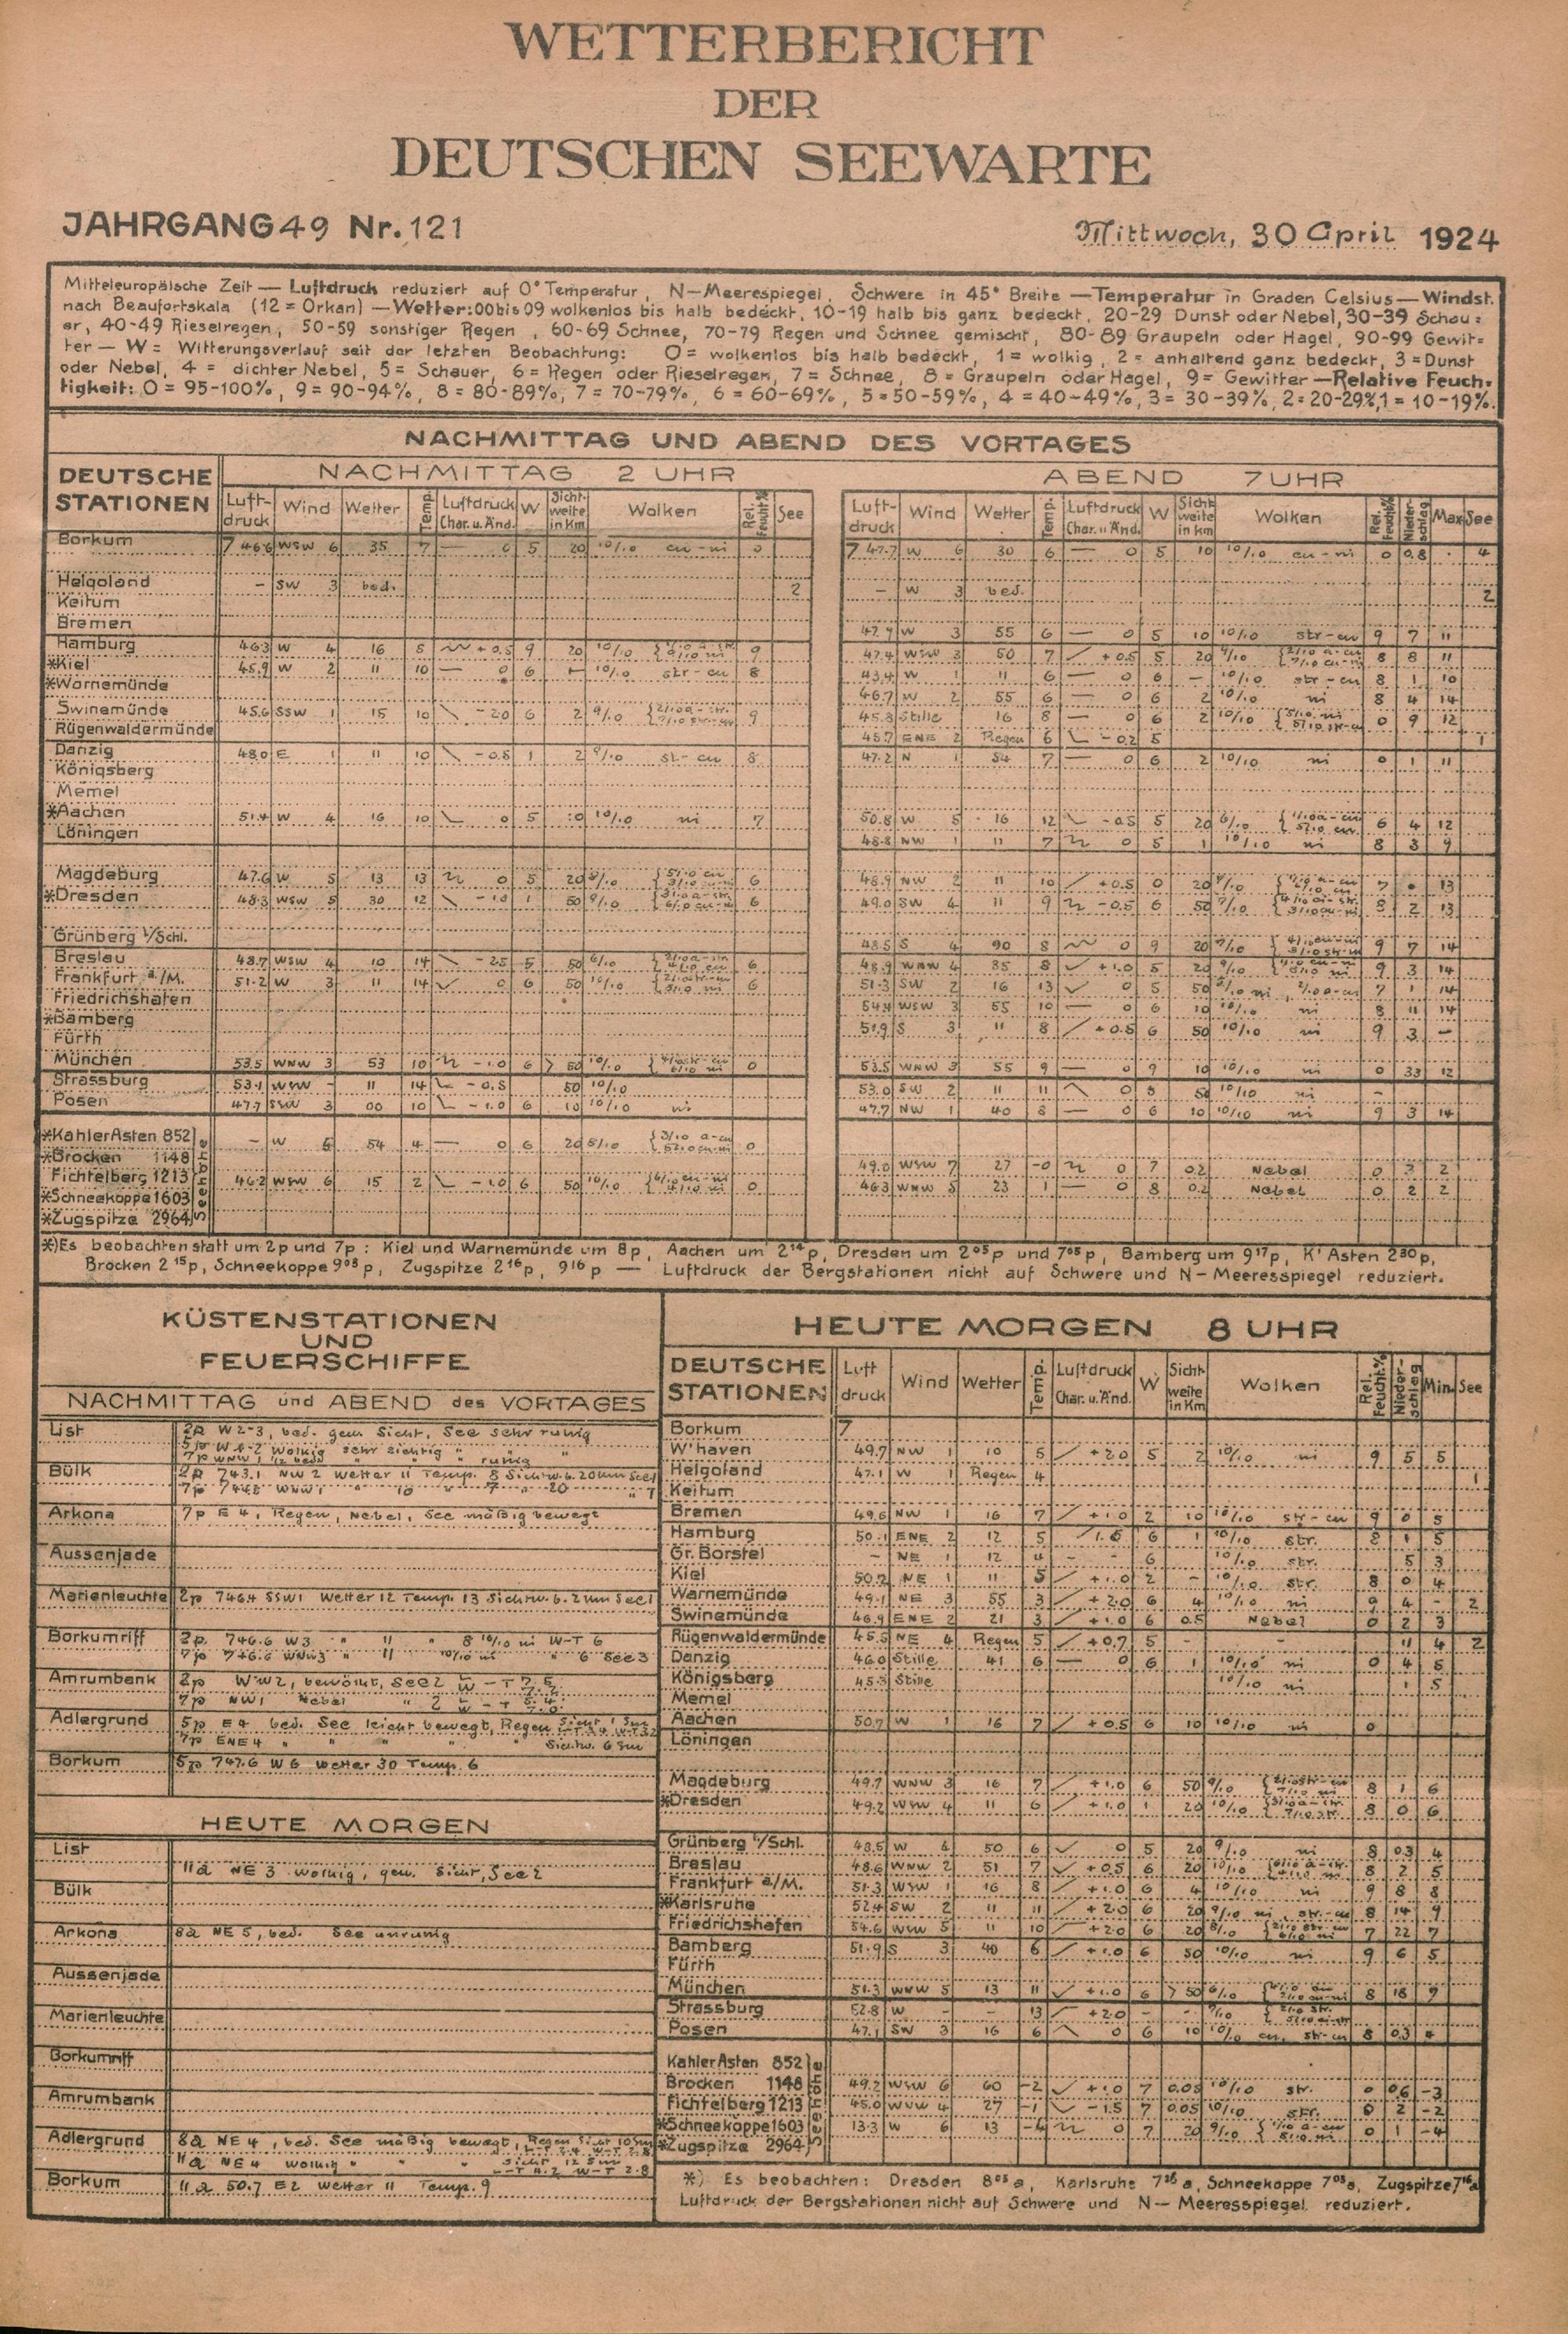 WETTERBERICHT
DER
DEUTSCHEN SEEWARTE
JAHRGANG 49 Nr. 121
Mittwoch, 30 April 1924
Mitteleuropäische Zeit — Luftdruck reduziert auf 0° Temperatur, N—Meerespiegel, Schwere in 45° Breite — Temperatur in Graden Celsius — Windst.
nach Beaufortskala (12 = Orkan) — Wetter: 00 bis 09 wolkenlos bis halb bedeckt, 10-19 halb bis ganz bedeckt, 20-29 Dunst oder Nebel, 30-39 Schau=
er, 40-49 Rieselregen, 50-59 sonstiger Regen, 60-69 Schnee, 70-79 Regen und Schnee gemischt, 80-89 Graupeln oder Hagel, 90-99 Gewit=
ter — W = Witterungsverlauf seit der letzten Beobachtung: 0 = wolkenlos bis halb bedeckt, 1 = wolkig, 2 = anhaltend ganz bedeckt, 3 = Dunst
oder Nebel, 4 = dichter Nebel, 5 = Schauer, 6 = Regen oder Rieselregen, 7 = Schnee, 8 = Graupeln oder Hagel, 9 = Gewitter — Relative Feuch=
tigkeit: 0 = 95-100%, 9 = 90-94%, 8 = 80-89%, 7 = 70-79%, 6 = 60-69%, 5 = 50-59%, 4 = 40-49%, 3 = 30-39%, 2 = 20-29%, 1 = 10-19%.
NACHMITTAG UND ABEND DES VORTAGES
DEUTSCHE STATIONEN
NACHMITTAG 2 UHR
ABEND 7 UHR
Luft-druck Wind Wetter Temp. Luftdruck Char. u. Änd. W Sicht-weite in Km Wolken Rel. Feucht.% See
Luft-druck Wind Wetter Temp. Luftdruck Char. u. Änd. W Sicht-weite in km Wolken Rel. Feucht.% Nieder-schlag Max See
Borkum 7 46.6 WSW 6 35 7 — 0 5 20 10/10 cu-ni 0 7 47.7 W 6 30 6 — 0 5 10 10/10 cu-ni 0 0.8 . 4
Helgoland – SW 3 bed. 2 – W 3 bed. 2
Keitum
Bremen 47.9 W 3 55 6 — 0 5 10 10/10 str-cu 9 7 11
Hamburg 46.3 W 4 16 8 +0.5 9 20 10/10 9 47.4 WSW 3 50 7 +0.5 5 20 9/10 8 8 11
*Kiel 45.9 W 2 11 10 — 0 6 10/10 str-cu 8 43.4 W 1 11 6 — 0 6 – 10/10 str-cu 8 1 10
*Warnemünde 46.7 W 2 55 6 — 0 6 2 10/10 ni 8 4 14
Swinemünde 45.6 SSW 1 15 10 -2.0 6 2 9/10 9 45.8 Stille 16 8 — 0 6 2 10/10 0 9 12
Rügenwaldermünde 45.7 ENE 2 Regen 6 -0.2 5 1
Danzig 48.0 E 1 11 10 -0.8 1 2 9/10 st-cu 8 47.2 N 1 54 7 — 0 6 2 10/10 ni 0 1 11
Königsberg
Memel
*Aachen 51.4 W 4 16 10 0 5 10 10/10 ni 7 50.8 W 5 16 12 -0.5 5 20 6/10 6 4 12
Löningen 48.8 NW 1 11 7 0 5 1 10/10 ni 8 3 9
Magdeburg 47.6 W 5 13 13 0 5 20 8/10 6 48.9 NW 2 11 10 +0.5 0 20 7 . 13
*Dresden 48.3 WSW 5 30 12 -1.0 1 50 9/10 6 49.0 SW 4 11 9 -0.5 6 50 7/10 8 2 13
Grünberg i/Schl. 48.5 S 4 90 8 0 9 20 7/10 9 7 14
Breslau 48.7 WSW 4 10 14 -2.5 5 50 6/10 6 48.9 WNW 4 85 8 +1.0 5 20 9/10 9 3 14
Frankfurt a/M. 51.2 W 3 11 14 0 6 50 10/10 6 51.3 SW 2 16 13 0 5 50 7 1 14
Friedrichshafen 54.4 WSW 3 55 10 — 0 6 10 10/10 ni 8 11 14
*Bamberg 51.9 S 3 11 8 +0.5 6 50 10/10 ni 9 3 –
Fürth
München 53.5 WNW 3 53 10 -1.0 6 > 50 10/10 0 53.5 WNW 3 55 9 — 0 9 10 10/10 ni 0 33 12
Strassburg 53.1 WSW – 11 14 -0.5 50 10/10 53.0 SW 2 11 11 0 5 50 10/10 ni –
Posen 47.7 SSW 3 00 10 -1.0 6 10 10/10 ni 47.7 NW 1 40 8 — 0 6 10 10/10 ni 9 3 14
Seehöhe
*Kahler Asten 852 – W 5 54 4 — 0 6 20 0
*Brocken 1148 49.0 WSW 7 27 -0 0 7 0.2 Nebel 0 2
Fichtelberg 1213 46.2 WSW 6 15 2 -1.0 6 50 10/10 0 46.3 WNW 5 23 1 — 0 8 0.2 Nebel 0 2 2
*Schneekoppe 1603
*Zugspitze 2964
*) Es beobachten statt um 2p und 7p: Kiel und Warnemünde um 8p, Aachen um 2¹⁴p, Dresden um 2⁰⁵p und 7⁰⁵p, Bamberg um 9¹⁷p, K' Asten 2³⁰p,
Brocken 2¹⁵p, Schneekoppe 9⁰³p, Zugspitze 2¹⁶p, 9¹⁶p — Luftdruck der Bergstationen nicht auf Schwere und N—Meeresspiegel reduziert.
KÜSTENSTATIONEN
UND
FEUERSCHIFFE
NACHMITTAG und ABEND des VORTAGES
List 2p W 2-3, bed. gem Sicht, See sehr ruhig
5p W 1-2 wolkig sehr sichtig " " "
7p WNW 1, 1/2 bed. " " " ruhig
Bülk 2p 743.1 NW 2 Wetter 11 Temp. 8 Sichtw. 6. 20 sm See 1
7p 744.8 WNW 1 " 10 " 7 " 20 " 1
Arkona 7p E 4, Regen, Nebel, See mäßig bewegt
Aussenjade
Marienleuchte 2p 746.4 SSW 1 Wetter 12 Temp. 13 Sichtw. 6. 2 sm See 1
Borkumriff 2p 746.6 W 3 " 11 " 8 10/10 ni W-T 6
7p 746.6 WNW 3 " 11 10/10 ni " 6 See 3
Amrumbank 2p W 2, bewölkt, See 2
7p NW 1 Nebel " 2
Adlergrund 5p E 4 bed. See leicht bewegt, Regen
7p ENE 4 " " " " Sichtw. 6 sm
Borkum 5p 747.6 W 6 Wetter 30 Temp. 6
HEUTE MORGEN
List 11a NE 3 wolkig, gem. Sicht, See 2
Bülk
Arkona 8a NE 5, bed. See unruhig
Aussenjade
Marienleuchte
Borkumriff
Amrumbank
Adlergrund 8a NE 4, bed. See mäßig bewegt, Regen Sicht 10 sm
11a NE 4 wolkig " " Sicht 12 sm
L-T 4.2 W-T 2.8
Borkum 11a 50.7 E 2 Wetter 11 Temp. 9
HEUTE MORGEN 8 UHR
DEUTSCHE STATIONEN Luft druck Wind Wetter Temp. Luftdruck Char. u. Änd. W Sicht-weite in Km Wolken Rel. Feucht.% Nieder-schlag Min. See
Borkum 7
W'haven 49.7 NW 1 10 5 +2.0 5 2 10/10 ni 9 5 5
Helgoland 47.1 W 1 Regen 4 1
Keitum
Bremen 49.6 NW 1 16 7 +1.0 2 10 10/10 str-cu 9 0 5
Hamburg 50.1 ENE 2 12 5 1.5 6 1 10/10 str. 8 1 5
Gr. Borstel – NE 1 12 4 – – 6 10/10 str. 5 3
Kiel 50.2 NE 1 11 5 +1.0 2 – 10/10 str. 8 0 4
Warnemünde 49.1 NE 3 55 3 +2.0 6 4 10/10 ni 9 4 – 2
Swinemünde 46.9 ENE 2 21 3 +1.0 6 0.5 Nebel 0 2 3
Rügenwaldermünde 45.5 NE 4 Regen 5 +0.7 5 – – 11 4 2
Danzig 46.0 Stille 41 6 — 0 6 1 10/10 ni 0 4 5
Königsberg 45.3 Stille 10/10 ni 1 5
Memel
Aachen 50.7 W 1 16 7 +0.5 6 10 10/10 ni 0
Löningen
Magdeburg 49.7 WNW 3 16 7 +1.0 6 50 9/10 8 1 6
*Dresden 49.2 WSW 4 11 6 +1.0 1 20 10/10 8 0 6
Grünberg i/Schl. 48.5 W 4 50 6 0 5 20 9/10 ni 8 0.3 4
Breslau 48.6 WNW 2 51 7 +0.5 6 20 10/10 8 2 5
Frankfurt a/M. 51.3 WSW 1 16 8 +1.0 6 4 10/10 ni 9 8 8
*Karlsruhe 52.4 SW 2 11 11 +2.0 6 20 9/10 ni, str-cu 8 14 9
Friedrichshafen 54.6 WSW 5 11 10 +2.0 6 20 8/10 7 22 7
Bamberg 51.9 S 3 40 6 +1.0 6 50 10/10 ni 9 6 5
Fürth
München 51.3 WNW 5 13 11 +1.0 6 > 50 6/10 8 18 9
Strassburg 52.8 W – – 13 +2.0 –
Posen 47.1 SW 3 16 6 0 6 10 10/10 cu, str-cu 8 0.3 4
Seehöhe
Kahler Asten 852
Brocken 1148 49.2 WSW 6 60 -2 +1.0 7 0.05 10/10 str. 0 0.6 -3
Fichtelberg 1213 45.0 WNW 4 27 -1 -1.5 7 0.05 10/10 str. 0 2 -2
*Schneekoppe 1603 13.3 W 6 13 -4 0 7 20 9/10 0 1 -4
*Zugspitze 2964
*) Es beobachten: Dresden 8⁰⁵a, Karlsruhe 7²⁶a, Schneekoppe 7⁰³a, Zugspitze 7¹⁶a
Luftdruck der Bergstationen nicht auf Schwere und N—Meeresspiegel reduziert.